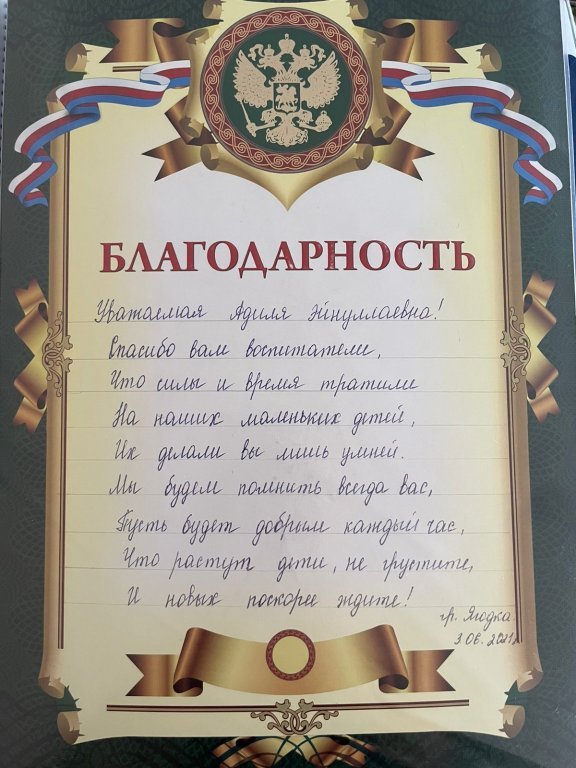 БЛАГОДАРНОСТЬ
Уважаемая Адиля Эйнуллаевна!
Спасибо вам воспитатели,
Что силы и время тратили
На наших маленьких детей,
Их делали вы лишь умней.
Мы будем помнить всегда вас,
Пусть будет добрым каждый час,
Что растут дети, не грустите,
И новых поскорее ждите!
гр. Ягодка.
3.06.